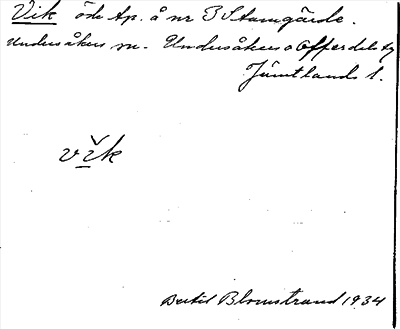 Vik öde tp. å nr 3 Stamgärde.
Undersåkers sn. Undersåkers o Offerdals tg
Jämtlands l.
vik
Bertil Blomstrand 1934